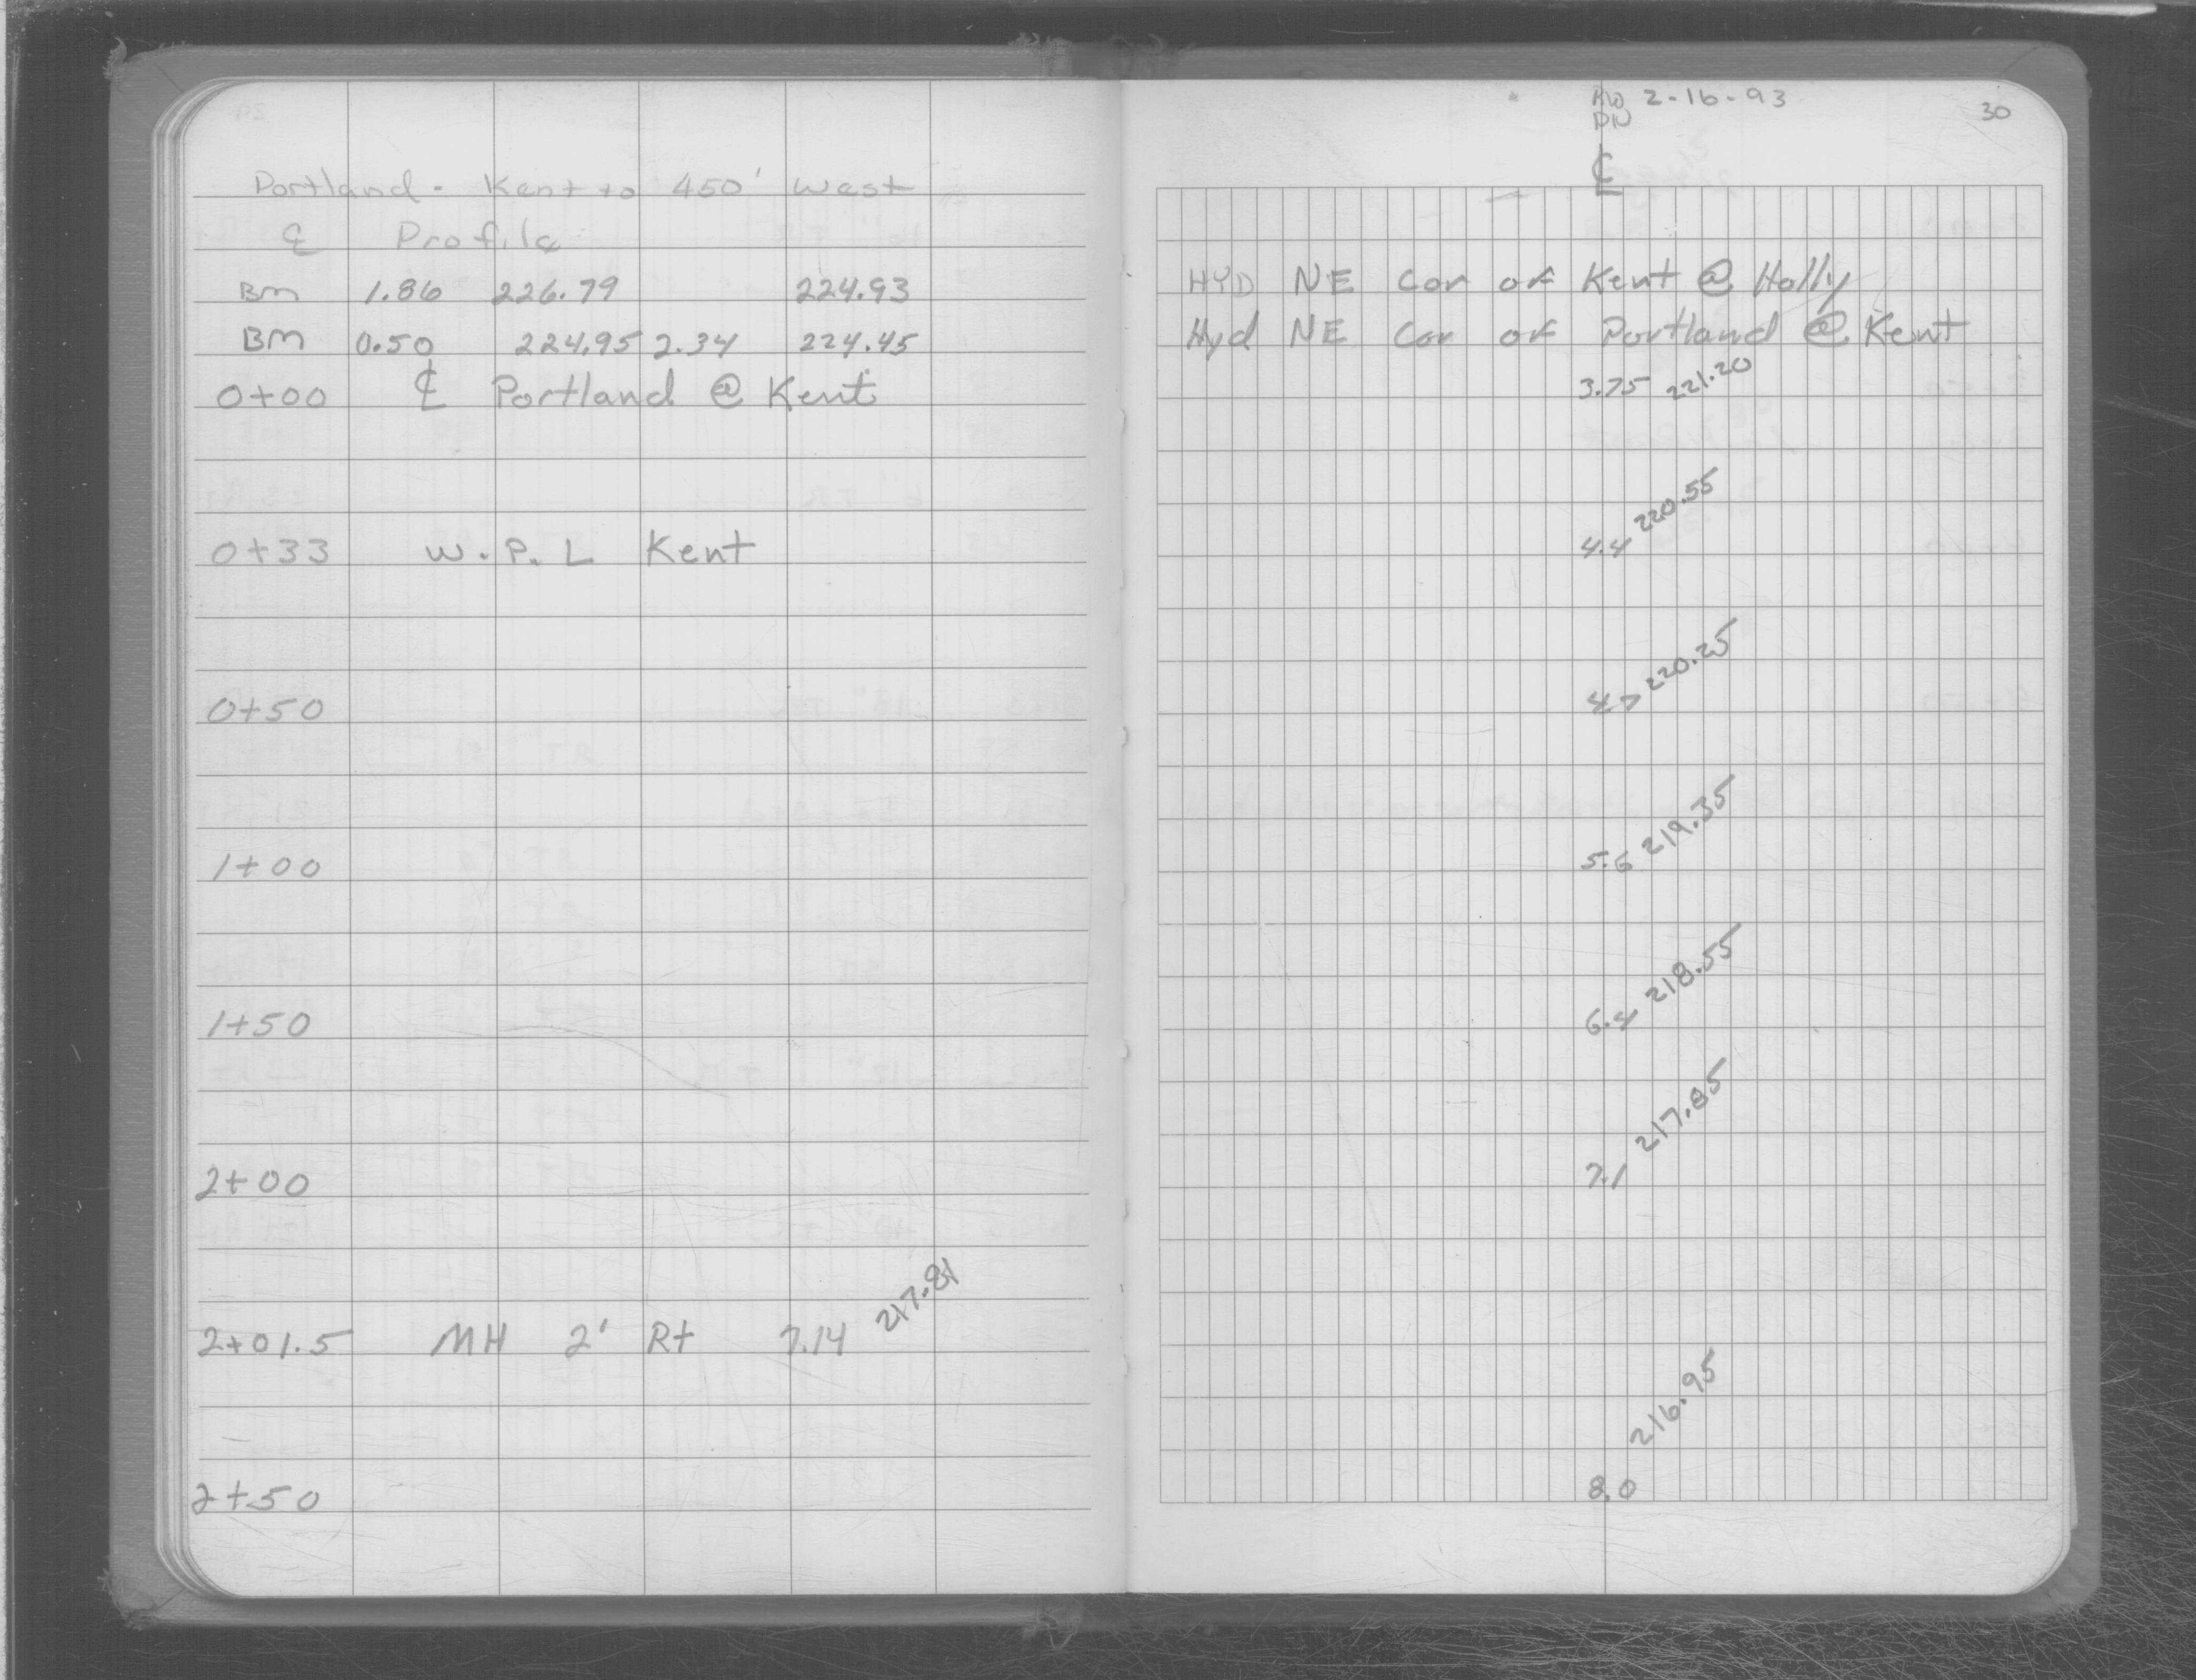 Portland - Kent to 450' West
℄ Profile
BM 1.86 226.79 224.93
BM 0.50 224.95 2.34 224.45
0+00 ℄ Portland @ Kent
0+33 W.P.L Kent
0+50
1+00
1+50
2+00
2+01.5 MH 2' Rt 7.14 217.81
2+50
2-16-93
30
℄
HYD NE Cor of Kent @ Holly
Hyd NE Cor of Portland @ Kent
3.75 221.20
4.4 220.55
4.7 220.25
5.6 219.35
6.4 218.55
7.1 217.85
8.0 216.95